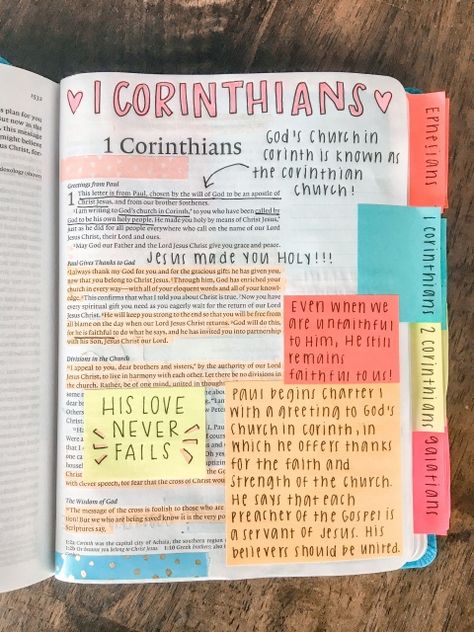 1532
plan for you.
But now as the
, this message
us Christ, for-
doxology (which
♥ 1 CORINTHIANS ♥
1 Corinthians
God's church in
corinth is known as
the corinthian
church!
Greetings from Paul
1 This letter is from Paul, chosen by the will of God to be an apostle of
Christ Jesus, and from our brother Sosthenes.
I am writing to God's church in Corinth, to you who have been called by
God to be his own holy people. He made you holy by means of Christ Jesus,
just as he did for all people everywhere who call on the name of our Lord
Jesus Christ, their Lord and ours.
May God our Father and the Lord Jesus Christ give you grace and peace.
Jesus made you HOLY!!!
Paul Gives Thanks to God
I always thank my God for you and for the gracious gifts he has given you,
now that you belong to Christ Jesus. Through him, God has enriched your
church in every way—with all of your eloquent words and all of your knowl-
edge. This confirms that what I told you about Christ is true. Now you have
every spiritual gift you need as you eagerly wait for the return of our Lord
Jesus Christ. He will keep you strong to the end so that you will be free from
all blame on the day when our Lord Jesus Christ returns. God will do this,
for he is faithful to do what he says, and he has invited you into partnership
with his Son, Jesus Christ our Lord.
Even when we
are unfaithful
to Him, He still
remains
faithful to us!
Divisions in the Church
I appeal to you, dear brothers and sisters, by the authority of our Lord
Jesus Christ, to live in harmony with each other. Let there be no divisions in
the church. Rather, be of one mind, united in thought
HIS LOVE
NEVER
FAILS
Paul begins chapter 1
with a greeting to God's
church in Corinth, in
which he offers thanks
for the faith and
strength of the church.
He says that each
preacher of the Gospel is
a servant of Jesus. His
believers should be united.
with clever speech, for fear that the cross of Christ would
The Wisdom of God
The message of the cross is foolish to those who are
tion! But we who are being saved know it is the very
Scriptures say,
1:2a Corinth was the capital city of Achaia, the southern region
1:10 Greek brothers; also
Ephesians
1 corinthians
2 corinthians
galatians